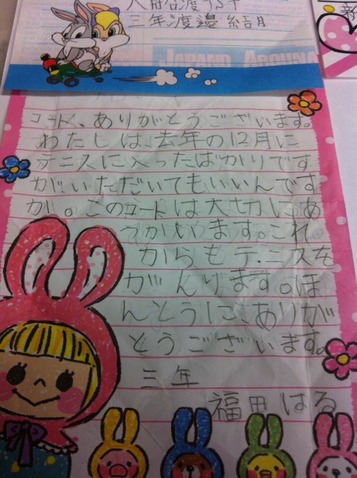 三年渡邉結月
コート、ありがとうございます。
わたしは、去年の12月に
テニスに入ったばかりです
がいただいてもいいんです
か。このコートは大切にあ
つかいます。これ
からもテニスを
がんります。ほ
んとうに、ありが
とうございます。
三年
福田はる